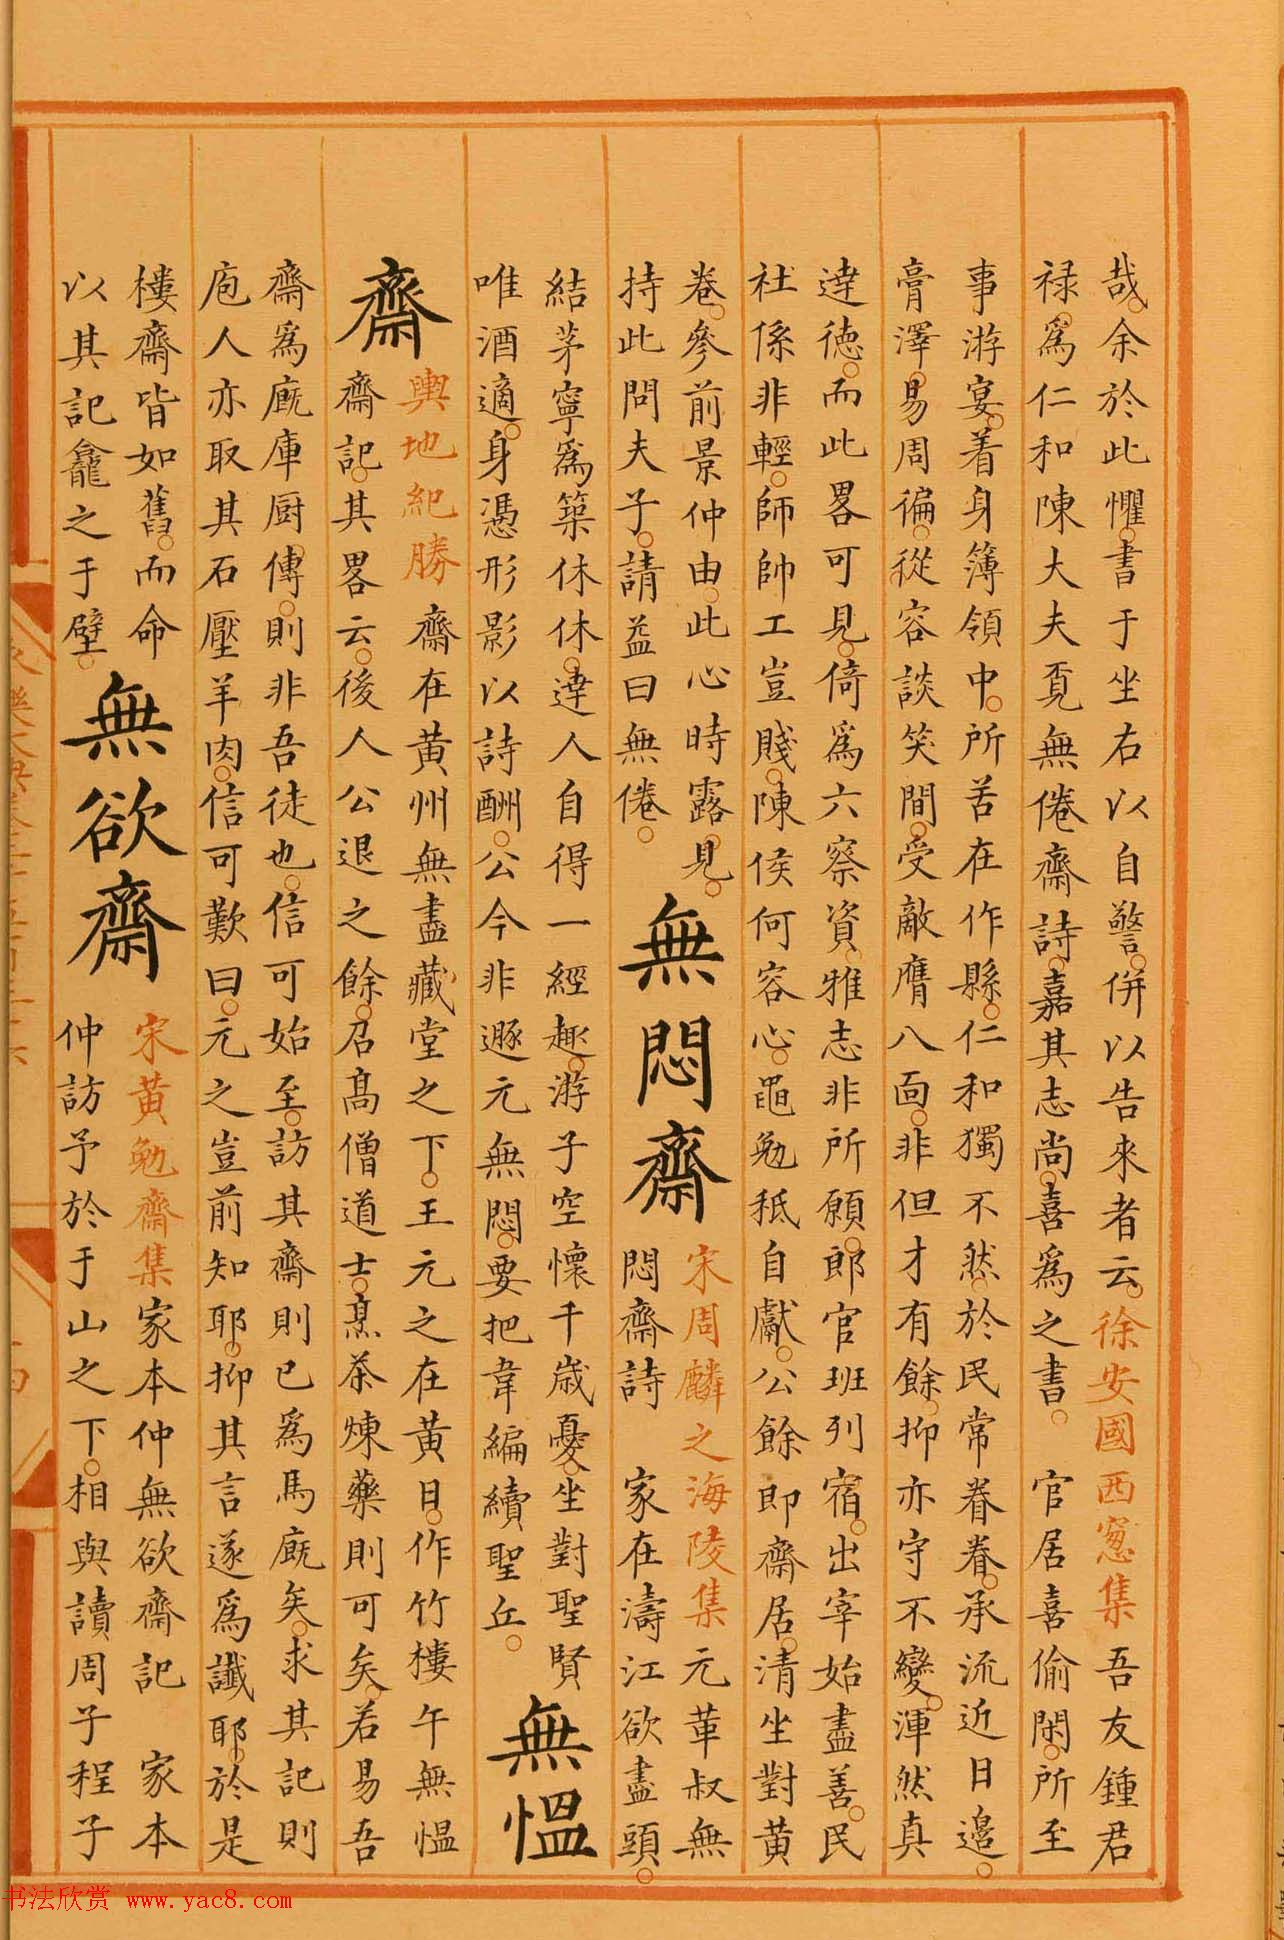 哉余於此懼書于坐右以自警併以告來者云徐安國西窓集吾友鍾君
禄爲仁和陳大夫覔無倦齋詩嘉其志尚喜爲之書官居喜偷閑所至
事游宴着身簿領中所苦在作縣仁和獨不然於民常眷眷承流近日邉
膏澤易周徧從容談笑間受敵膺八面非但才有餘抑亦守不變渾然真
逹徳而此畧可見倚爲六察資雅志非所願郎官班列宿出宰始盡善民
社係非輕師帥工豈賤陳侯何容心黽勉秖自獻公餘即齋居清坐對黄
卷參前景仲由此心時露見無悶齋宋周麟之海陵集元革叔無
持此問夫子請益曰無倦悶齋詩家在濤江欲盡頭
結茅寧爲築休休逹人自得一經趣游子空懷千歳憂坐對聖賢
唯酒適身憑形影以詩酬公今非遯元無悶要把韋編續聖丘無愠
齋輿地紀勝齋在黄州無盡藏堂之下王元之在黄日作竹樓午無愠
齋記其畧云後人公退之餘召髙僧道士烹茶煉藥則可矣若易吾
齋爲廐庫厨傳則非吾徒也信可始至訪其齋則已爲馬廐矣求其記則
庖人亦取其石壓羊肉信可歎曰元之豈前知耶抑其言遂爲讖耶於是
樓齋皆如舊而命
以其記龕之于壁無欲齋宋黄勉齋集家本仲無欲齋記家本
仲訪予於于山之下相與讀周子程子